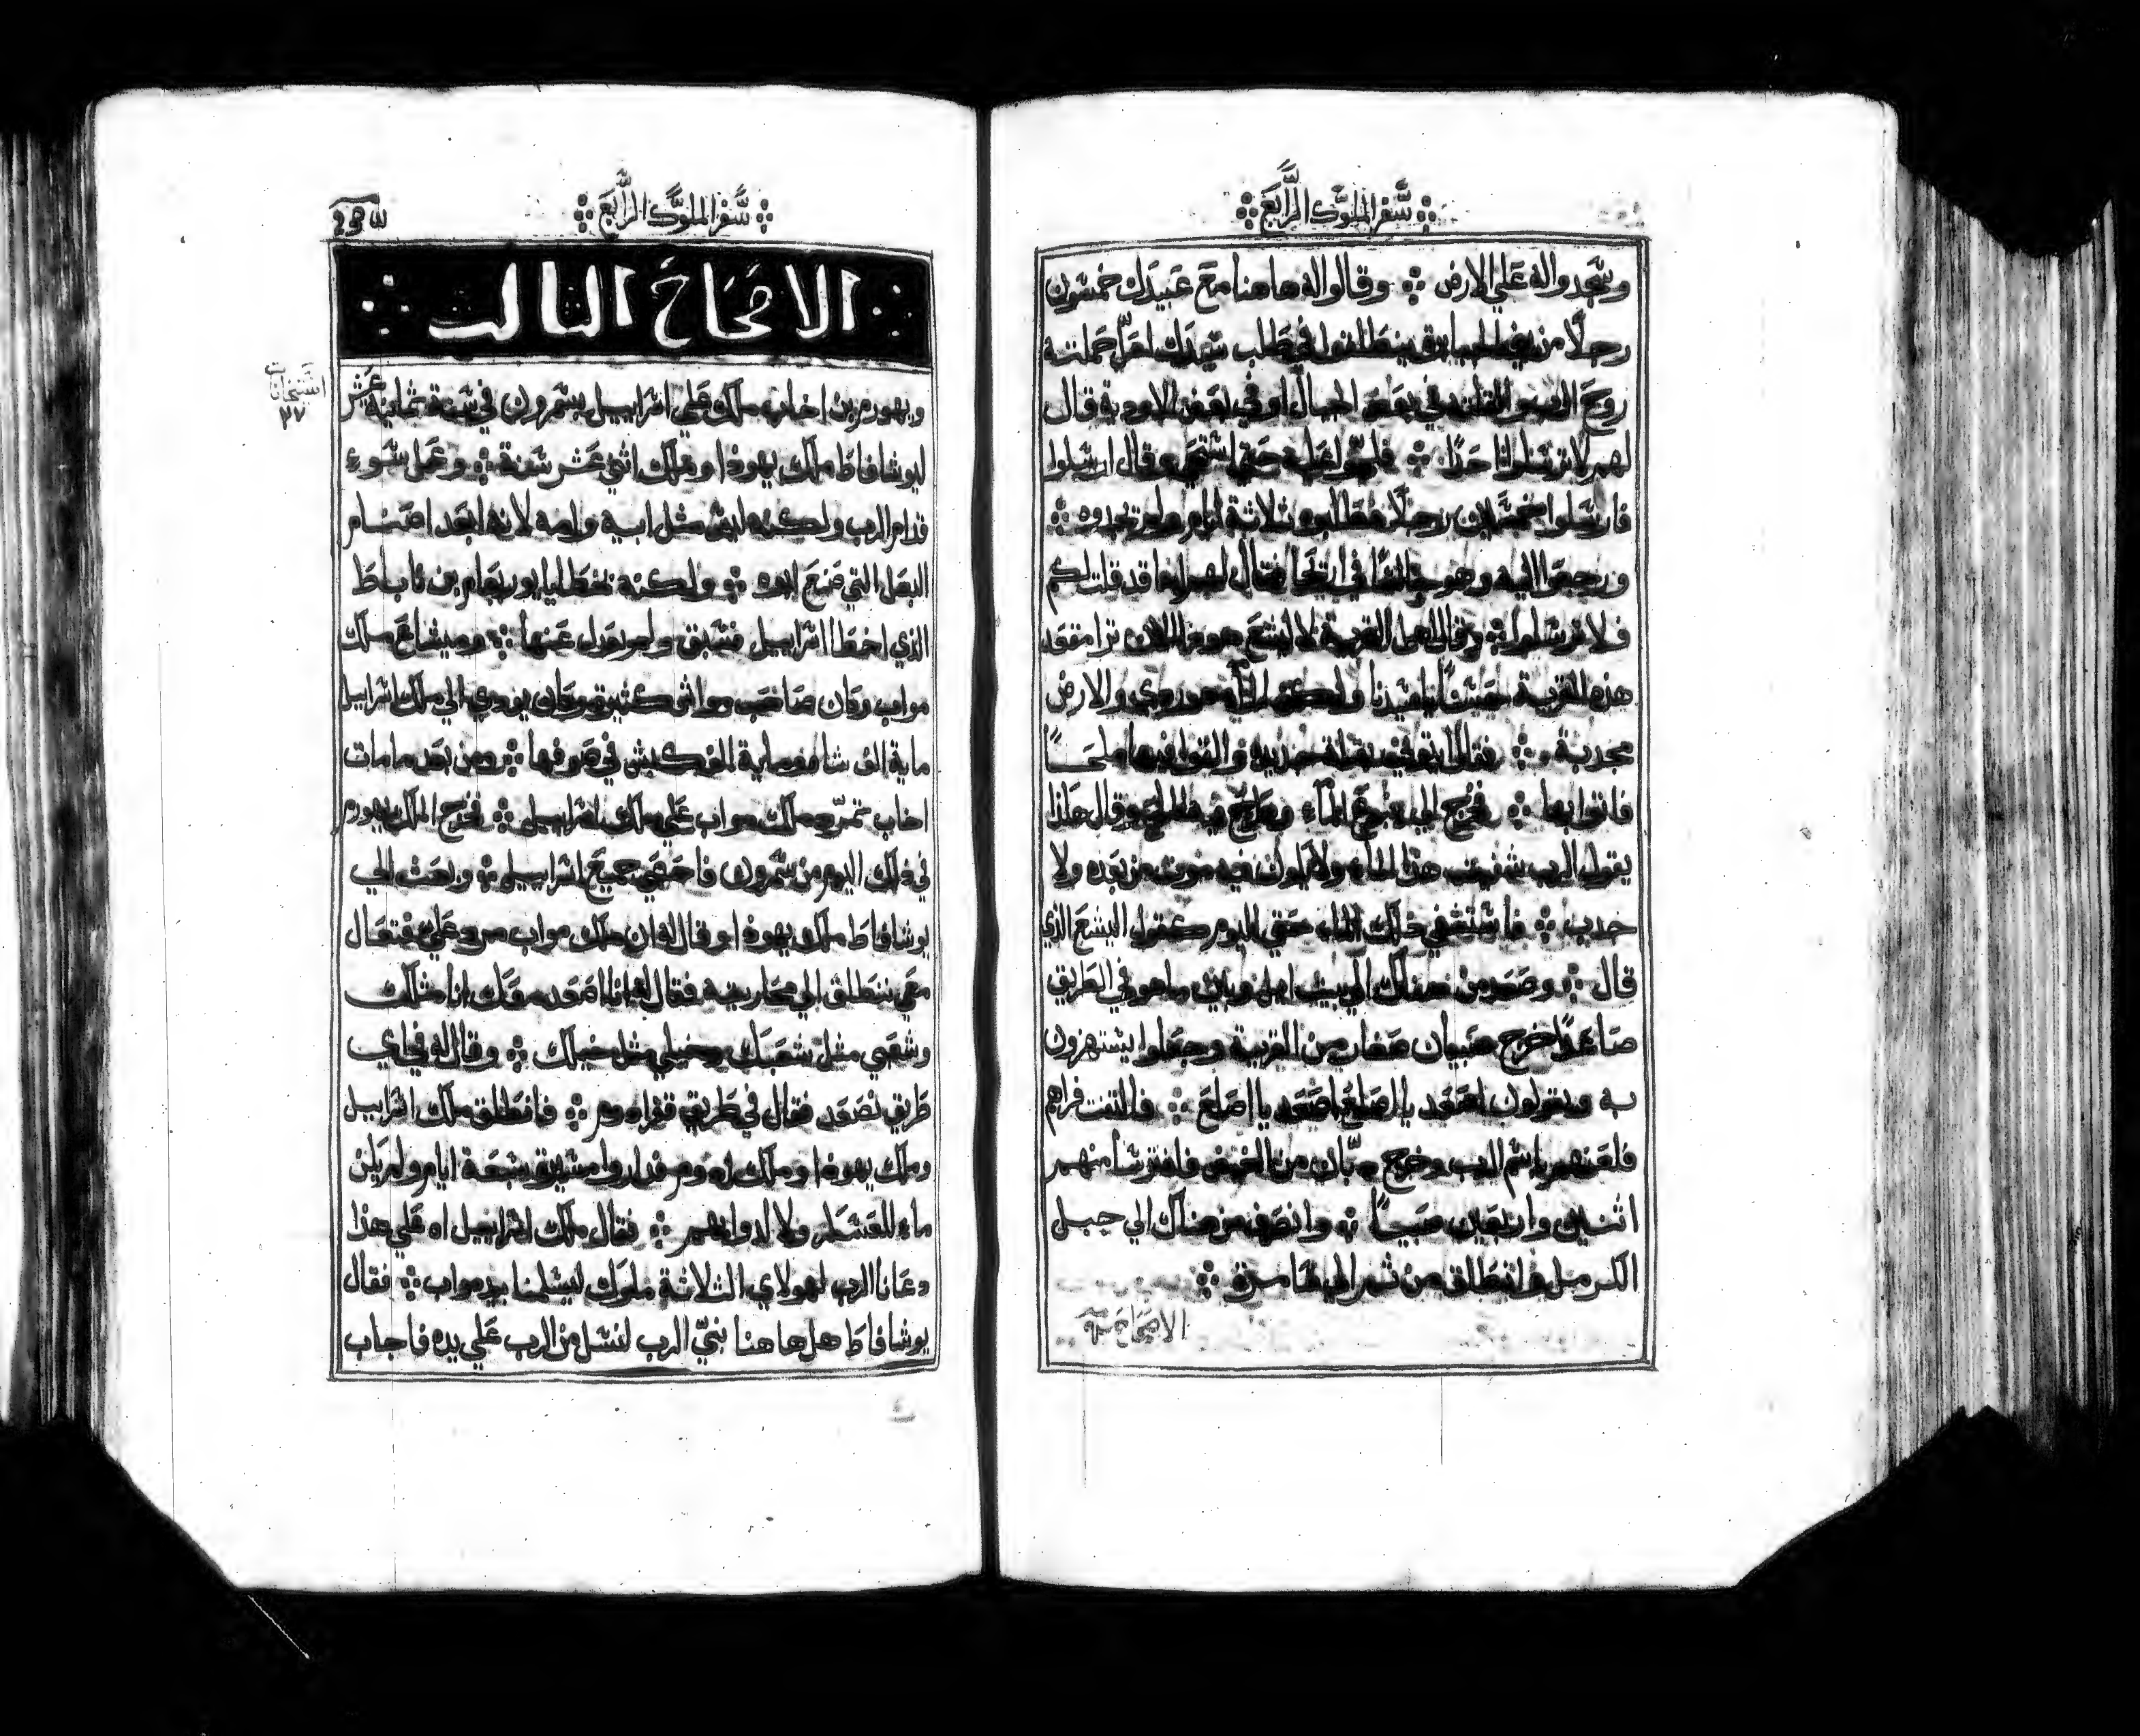 سفر الملوك الرابع
وسجدوا له علي الارض وقالوا له هاهنا مع عبيدك خمسون
رجلا من ينطلقوا في طلب سيدك لعل حملته
روح الرب في بعض الجبال او في بعض الاودية قال
لهم لا ترسلوا احدا حتي استحي وقال ارسلوا
فارسلوا خمسين رجلا فطلبوه ثلاثة ايام ولم يجدوه
ورجعوا اليه وهو في اريحا فقال لهم انما قد قلت لكم
فلا ترسلوا وقال اهل القرية لاليشع هوذا الان ترا مقعد
هذه القرية يا سيدنا ولكن الماء رديي والارض
مجدبة فقال ايتوني جديده والقوا فيها ملحا
فاتوا بها فخرج الي الماء وطرح فيه الملح وقال هاذا
يقول الرب شفيت هذا الماء ولا يكون فيه موت من بعده ولا
جدب فاستشفي ذلك الماء حتي اليوم كقول اليشع الذي
قال وصعد من هناك الي بيت ايل وبين ما هو في الطريق
صاعدا خرج صبيان صغار من القرية وجعلوا يستهزون
به ويقولون اصعد يا اصلع اصعد يا اصلع فالتفت فراهم
فلعنهم باسم الرب وخرج دبان من الغيض فافترسا منهم
اثنين واربعين صبيا وانصرف من هناك الي جبل
الكرمل وانطلق من ثم الي سامرة
الاصحاح
سفر الملوك الرابع
الاصحاح الثالث
٢٧
ويهورم بن اخاب ملك علي اسراييل بشمرون في سنة ثمانية عشر
ليوشافاط ملك يهوذا وملك اثني عشر سنة وعمل سوء
قدام الرب ولكنه ليس مثل ابيه وامه لانه ابعد اصنام
البعل التي صنع ابوه ولكنه بخطايا يوربعام بن ناباط
الذي اخطا اسراييل فتبق ولم يحول عنها وميشاع ملك
مواب وكان صاحب مواشي كثيرة وكان يودي الي ملك اسراييل
ماية الف شاة وماية الف كبش في صوفها ومن بعد ما مات
اخاب تمرد ملك مواب علي ملك اسراييل فخرج الملك يهورم
في ذلك اليوم من شمرون فاحصي جميع اسراييل وبعث الي
يوشافاط ملك يهوذا وقال له ان ملك مواب مرد علي فتعال
معي ننطلق الي محاربته فقال له انا اصعد معك انا مثلك
وشعبي مثل شعبك وخيلي مثل خيلك وقال له في اي
طريق نصعد فقال في طريق قفر ادوم فانطلق ملك اسراييل
وملك يهوذا وملك ادوم فداروا مسيرة سبعة ايام ولم يكن
ماء للعسكر ولا لدوابهم فقال ملك اسراييل اه علي هذا
دعانا الرب لهولاي الثلاثة ملوك ليسلمنا بيد مواب فقال
يوشافاط هل هاهنا نبي الرب لنسل من الرب علي يده فاجاب